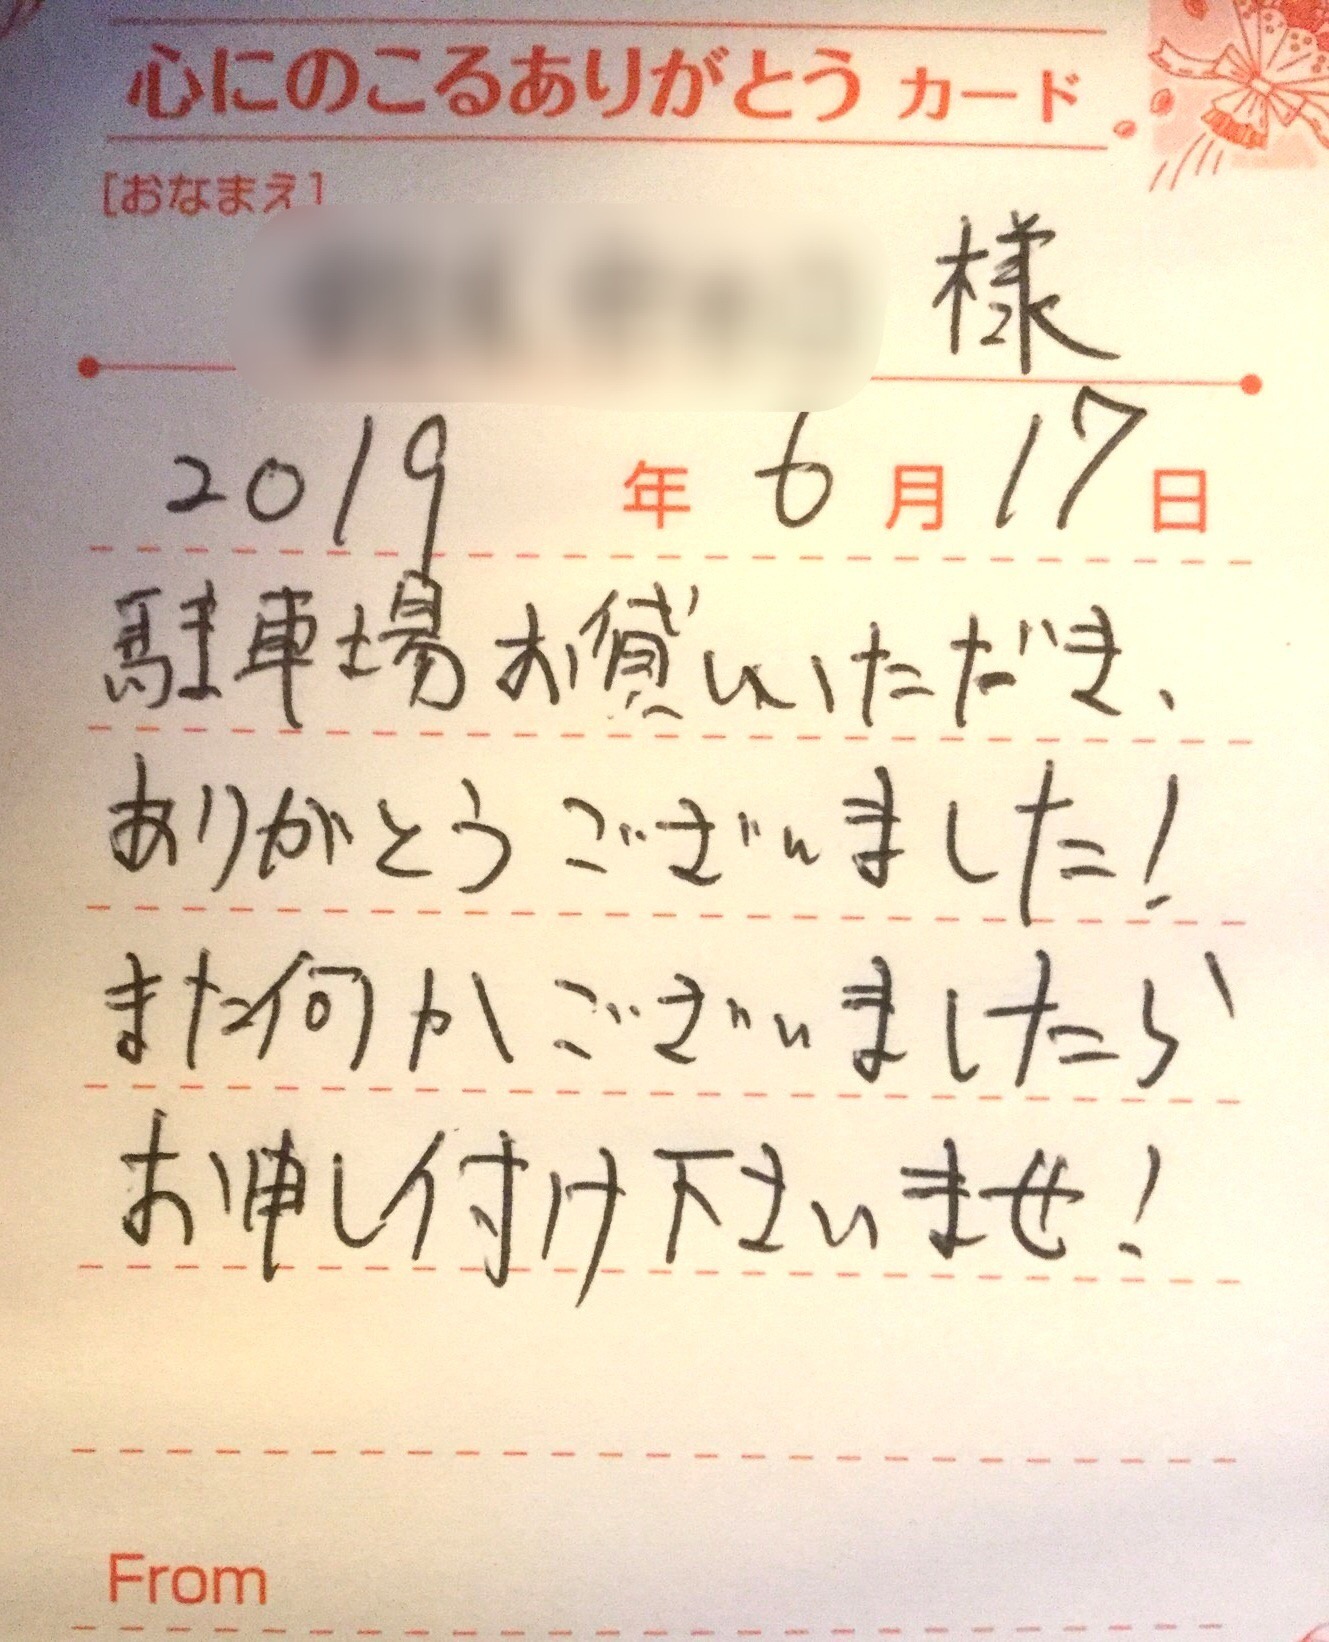 心にのこるありがとう カード
[おなまえ]
様
2019年6月17日
駐車場お貸しいただき、
ありがとうございました！
また何かございましたら、
お申し付け下さいませ！
From